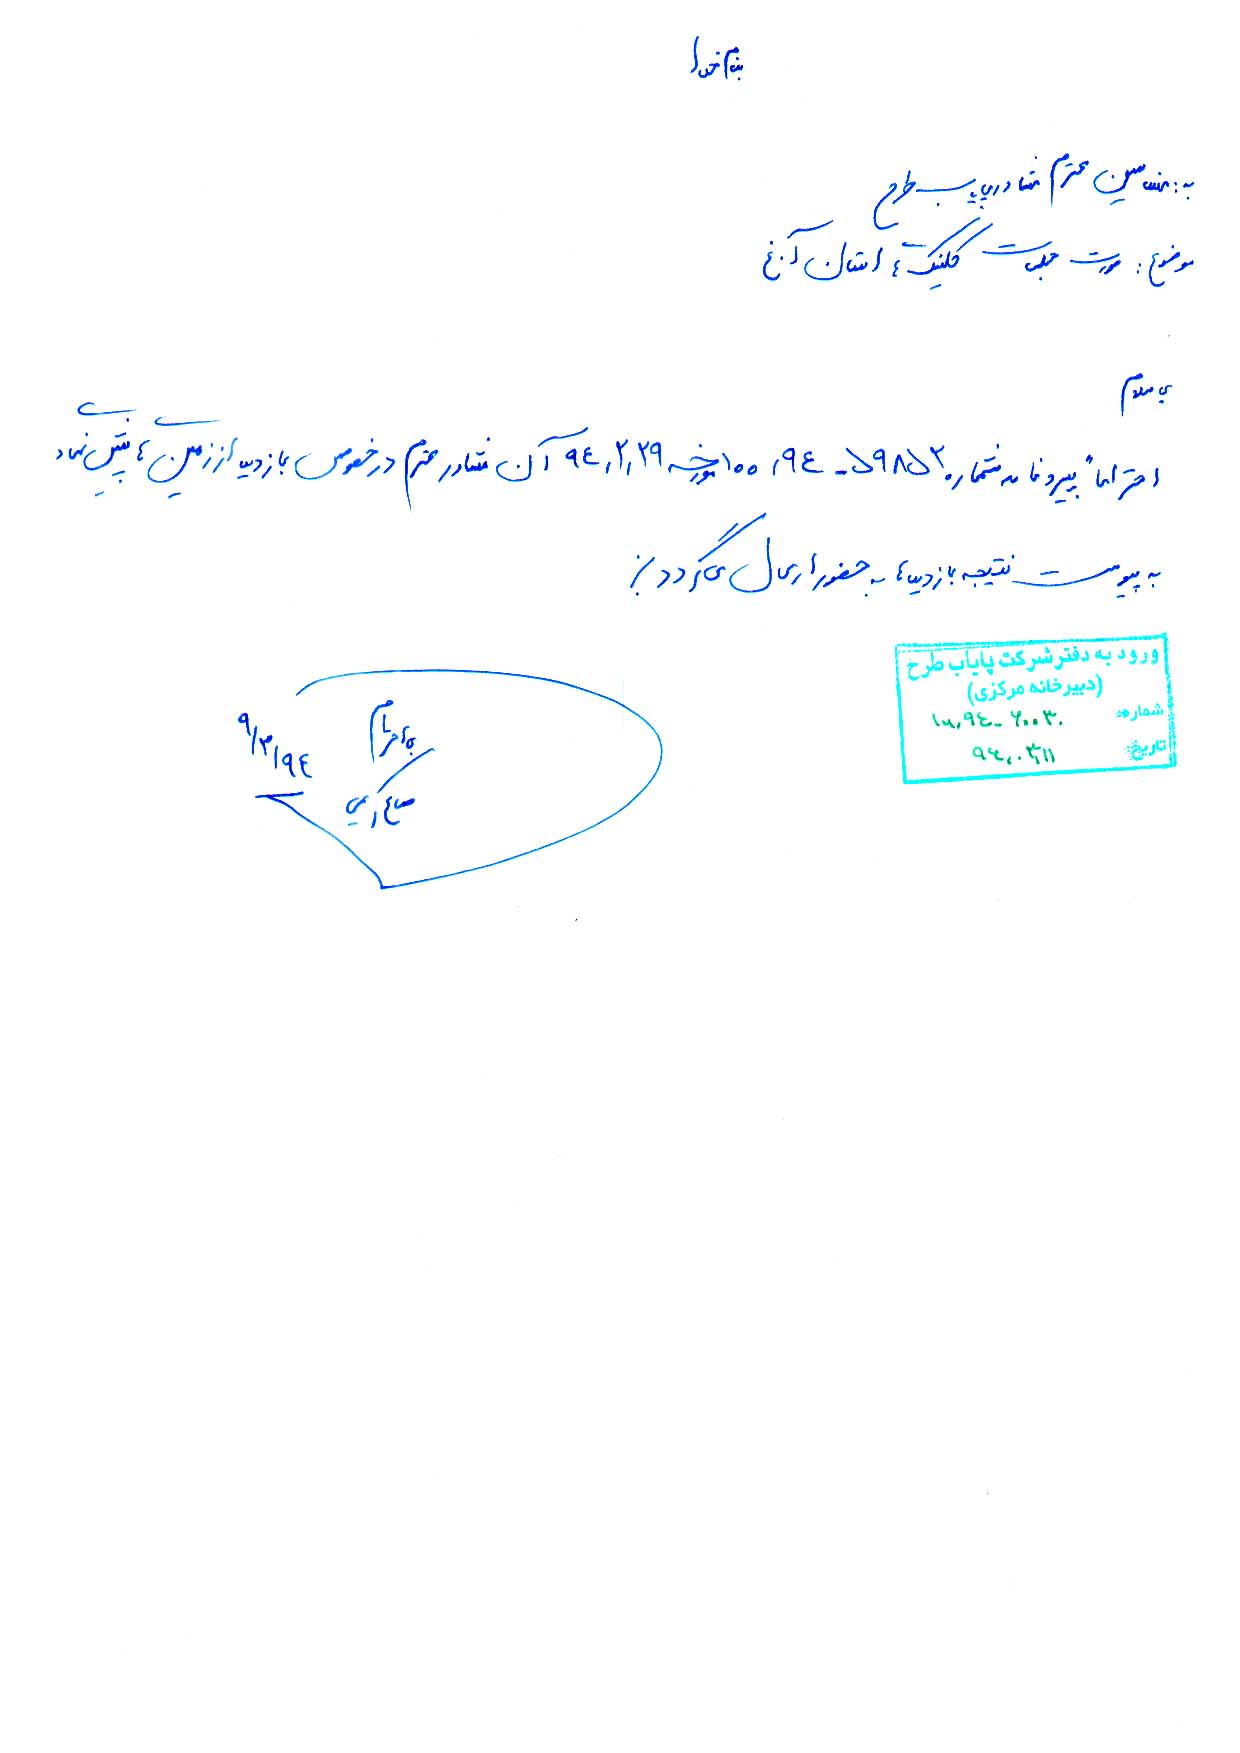 بنام خدا
به: مهندسین محترم مشاور پایاب طرح
موضوع: صورت جلسات کلینیک های استان آ.غ
با سلام
احتراماً پیرو نامه شماره ۵۹۸۵۳-۱۰۰,۹۴ مورخه ۹۴,۲,۲۹ آن مشاور محترم در خصوص بازدید از زمین های پیش نهادی
به پیوست نتیجه بازدیدها به حضور ارسال می گردد
ورود به دفتر شرکت پایاب طرح
(دبیرخانه مرکزی)
شماره: ۶۰۰۳۰-۱۰۰,۹۴
تاریخ: ۹۴,۰۳,۱۱
با احترام
۹/۳/۹۴